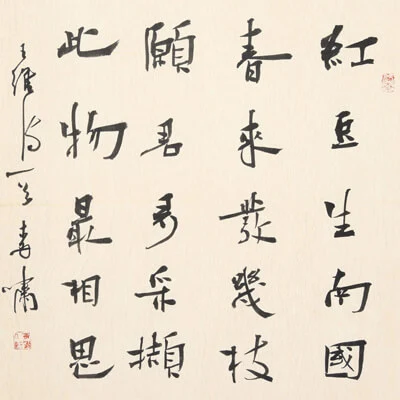 紅豆生南國
春來發幾枝
願君多采擷
此物最相思
王維詩一首 春嘯